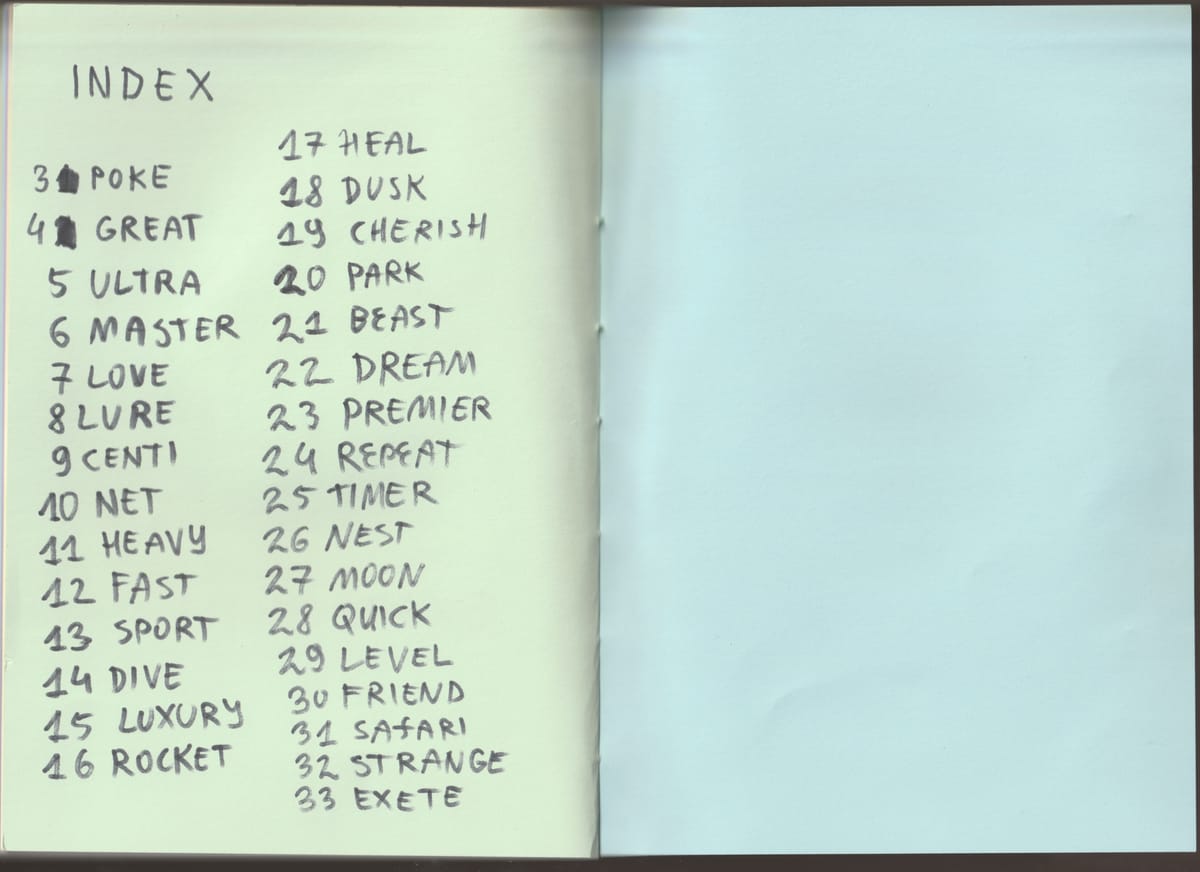 INDEX
3 POKE
4 GREAT
5 ULTRA
6 MASTER
7 LOVE
8 LURE
9 CENTI
10 NET
11 HEAVY
12 FAST
13 SPORT
14 DIVE
15 LUXURY
16 ROCKET
17 HEAL
18 DUSK
19 CHERISH
20 PARK
21 BEAST
22 DREAM
23 PREMIER
24 REPEAT
25 TIMER
26 NEST
27 MOON
28 QUICK
29 LEVEL
30 FRIEND
31 SAFARI
32 STRANGE
33 EXETE